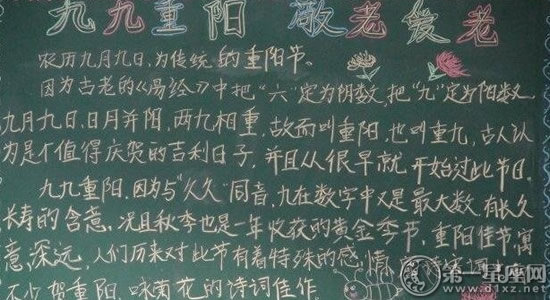 九九重阳 敬老爱老
农历九月九日,为传统的重阳节。
因为古老的《易经》中把“六”定为阴数,把“九”定为阳数,
九月九日,日月并阳,两九相重,故而叫重阳,也叫重九,古人认
为是个值得庆贺的吉利日子,并且从很早就开始过此节日。
九九重阳,因为与“久久”同音,九在数字中又是最大数,有长久
长寿的含意,况且秋季也是一年收获的黄金季节,重阳佳节,寓
意深远,人们历来对此节有着特殊的感情
不少贺重阳,咏菊花的诗词佳作。
第一星座网
www.d1xz.net